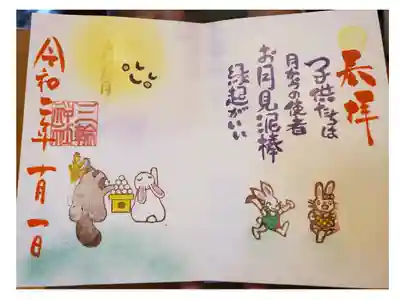 奉拝
子供たちは
月からの使者
お月見泥棒
縁起がいい
三輪神社
令和二年十月一日